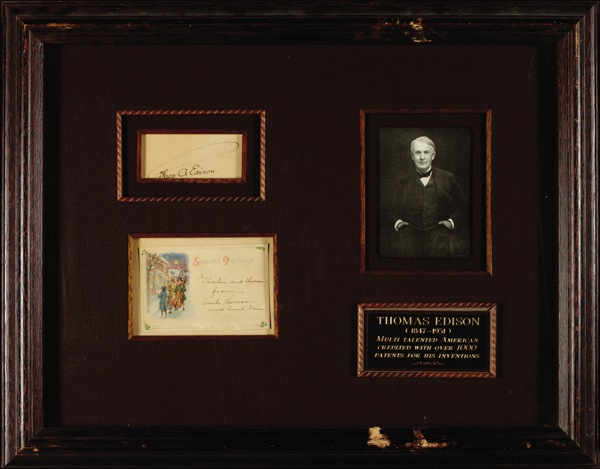 Thos A Edison.
Season's Greetings
and
from
Uncle Thomas
and Aunt
THOMAS EDISON
(1847-1931)
MULTI TALENTED AMERICAN
CREDITED WITH OVER 1000
PATENTS FOR HIS INVENTIONS